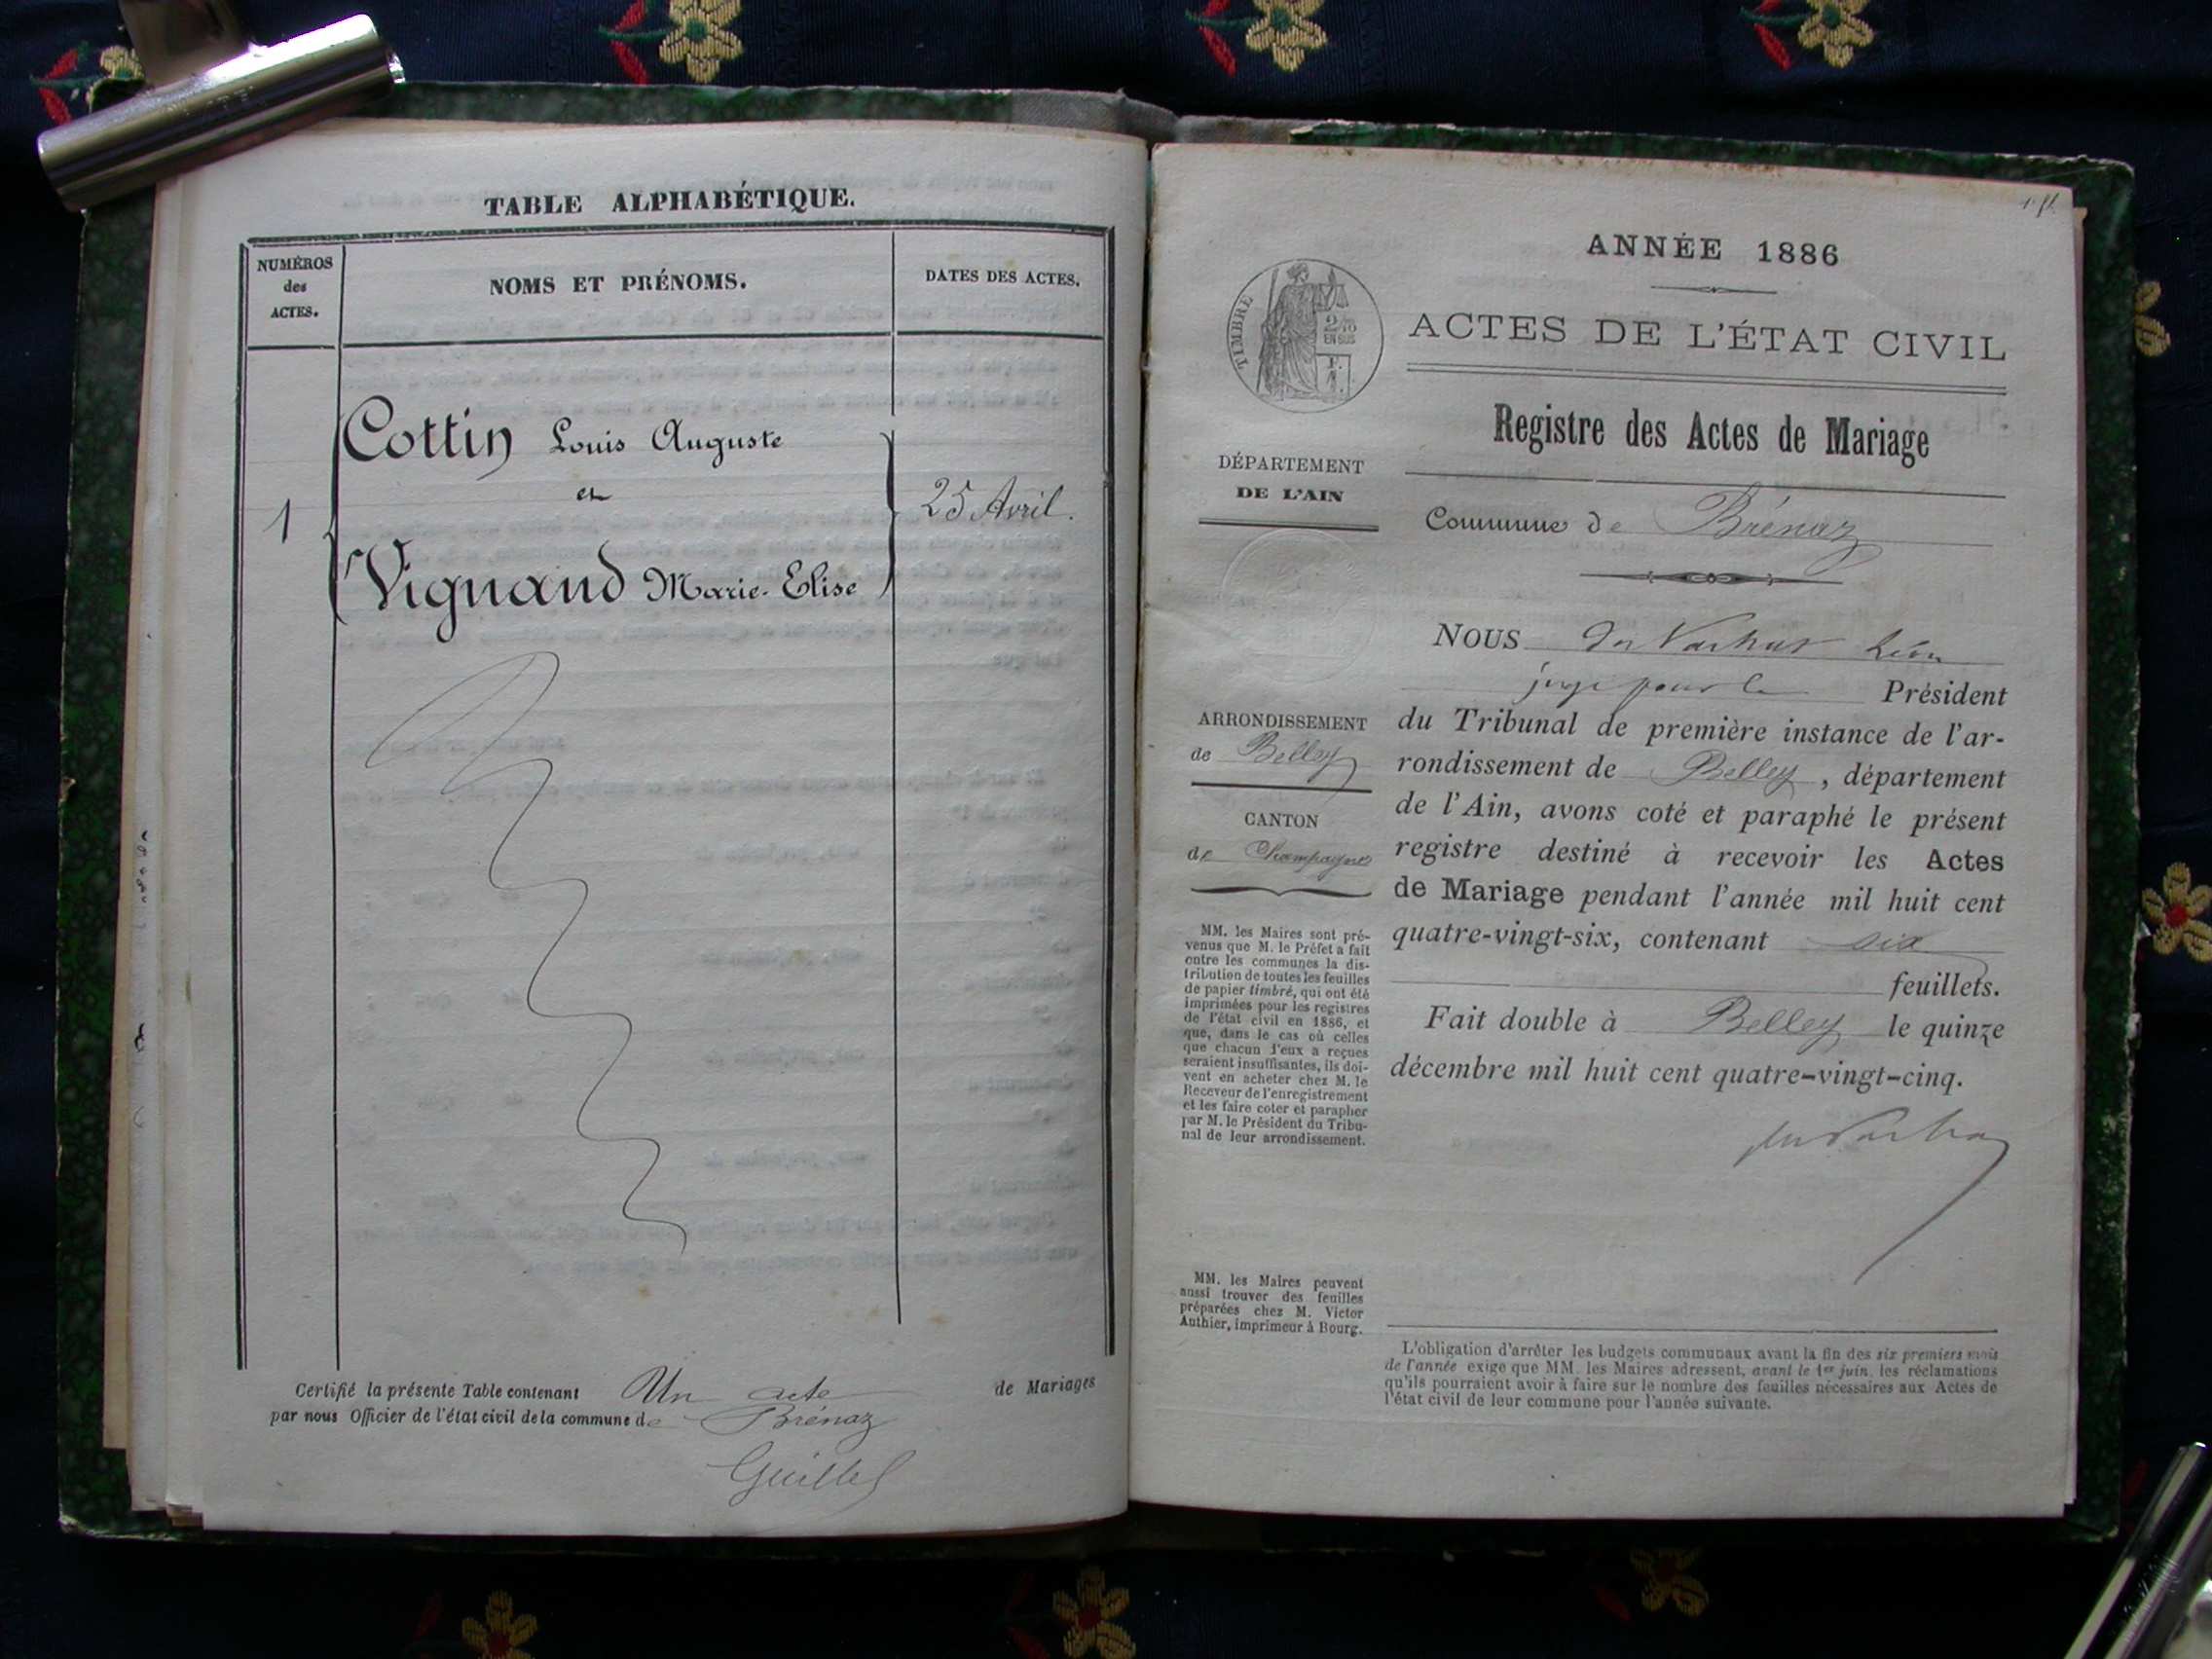 TABLE ALPHABÉTIQUE.
NUMÉROS
des
ACTES.
NOMS ET PRÉNOMS.
DATES DES ACTES.
Cottin Louis Auguste
et
1
25 Avril.
Vignand Marie-Elise
Certifié la présente Table contenant Un acte de Mariages
par nous Officier de l'état civil de la commune de Brénaz
ANNÉE 1886
TIMBRE
2/10
EN SUS
ACTES DE L'ÉTAT CIVIL
Registre des Actes de Mariage
DÉPARTEMENT
DE L'AIN
Commune de Brénaz
NOUS
juge pour le Président
ARRONDISSEMENT
de Belley
CANTON
de Champagne
du Tribunal de première instance de l'ar-
rondissement de Belley, département
de l'Ain, avons coté et paraphé le présent
registre destiné à recevoir les Actes
de Mariage pendant l'année mil huit cent
quatre-vingt-six, contenant six
feuillets.
Fait double à Belley le quinze
décembre mil huit cent quatre-vingt-cinq.
MM. les Maires sont pré-
venus que M. le Préfet a fait
entre les communes la dis-
tribution de toutes les feuilles
de papier timbré, qui ont été
imprimées pour les registres
de l'état civil en 1886, et
que, dans le cas où celles
que chacun d'eux a reçues
seraient insuffisantes, ils doi-
vent en acheter chez M. le
Receveur de l'enregistrement
et les faire coter et parapher
par M. le Président du Tribu-
nal de leur arrondissement.
MM. les Maires peuvent
aussi trouver des feuilles
préparées chez M. Victor
Authier, imprimeur à Bourg.
L'obligation d'arrêter les budgets communaux avant la fin des six premiers mois
de l'année exige que MM. les Maires adressent, avant le 1er juin, les réclamations
qu'ils pourraient avoir à faire sur le nombre des feuilles nécessaires aux Actes de
l'état civil de leur commune pour l'année suivante.